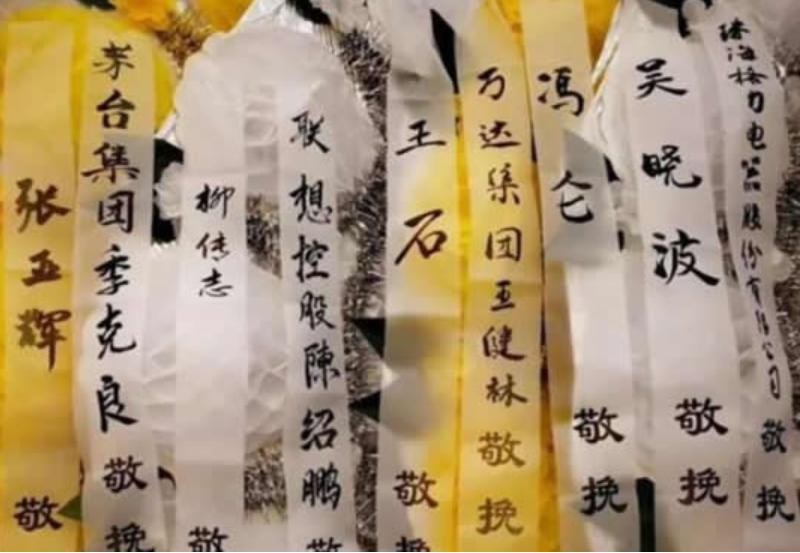 张五辉敬
茅台集团季克良敬挽
柳传志敬
联想控股陳绍鹏敬
王石敬挽
万达集团王健林敬挽
冯仑敬挽
吴晓波敬挽
珠海格力电器股份有限公司敬挽